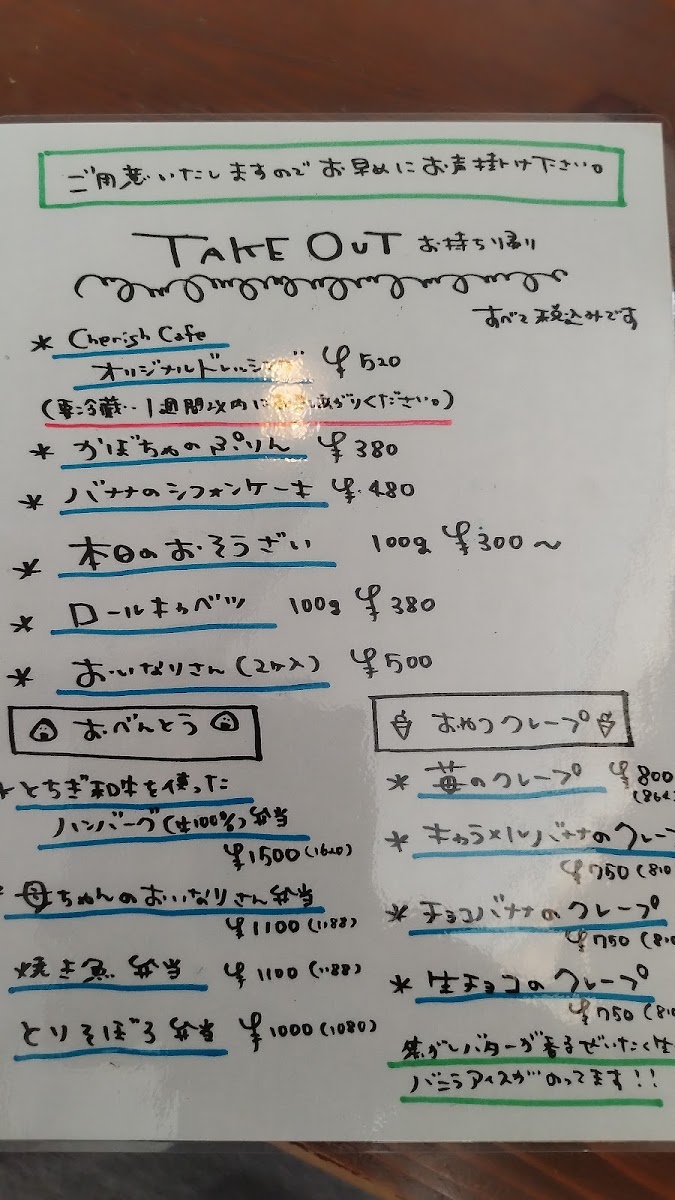 ご用意いたしますのでお早めにお声掛け下さい。
TAKE OUT お持ち帰り
すべて税込みです
* Cherish Cafe
オリジナルドレッシング ¥520
(要冷蔵‥1週間以内に がりください。)
* かぼちゃのぷりん ¥380
* バナナのシフォンケーキ ¥480
* 本日のおそうざい 100g ¥300～
* ロールキャベツ 100g ¥380
* おいなりさん(2ヶ入) ¥500
おべんとう
とちぎ和牛を使った
ハンバーグ(牛100%)弁当
¥1500(1620)
母ちゃんのおいなりさん弁当
¥1100(1188)
焼き魚弁当 ¥1100(1188)
とりそぼろ弁当 ¥1000(1080)
おやつクレープ
* 苺のクレープ ¥800
(864
* キャラメルバナナのクレープ
¥750(810
* チョコバナナのクレープ
¥750(810
* 生チョコのクレープ
¥750(810
焦がしバターが香るぜいたく生
バニラアイスがのってます!!